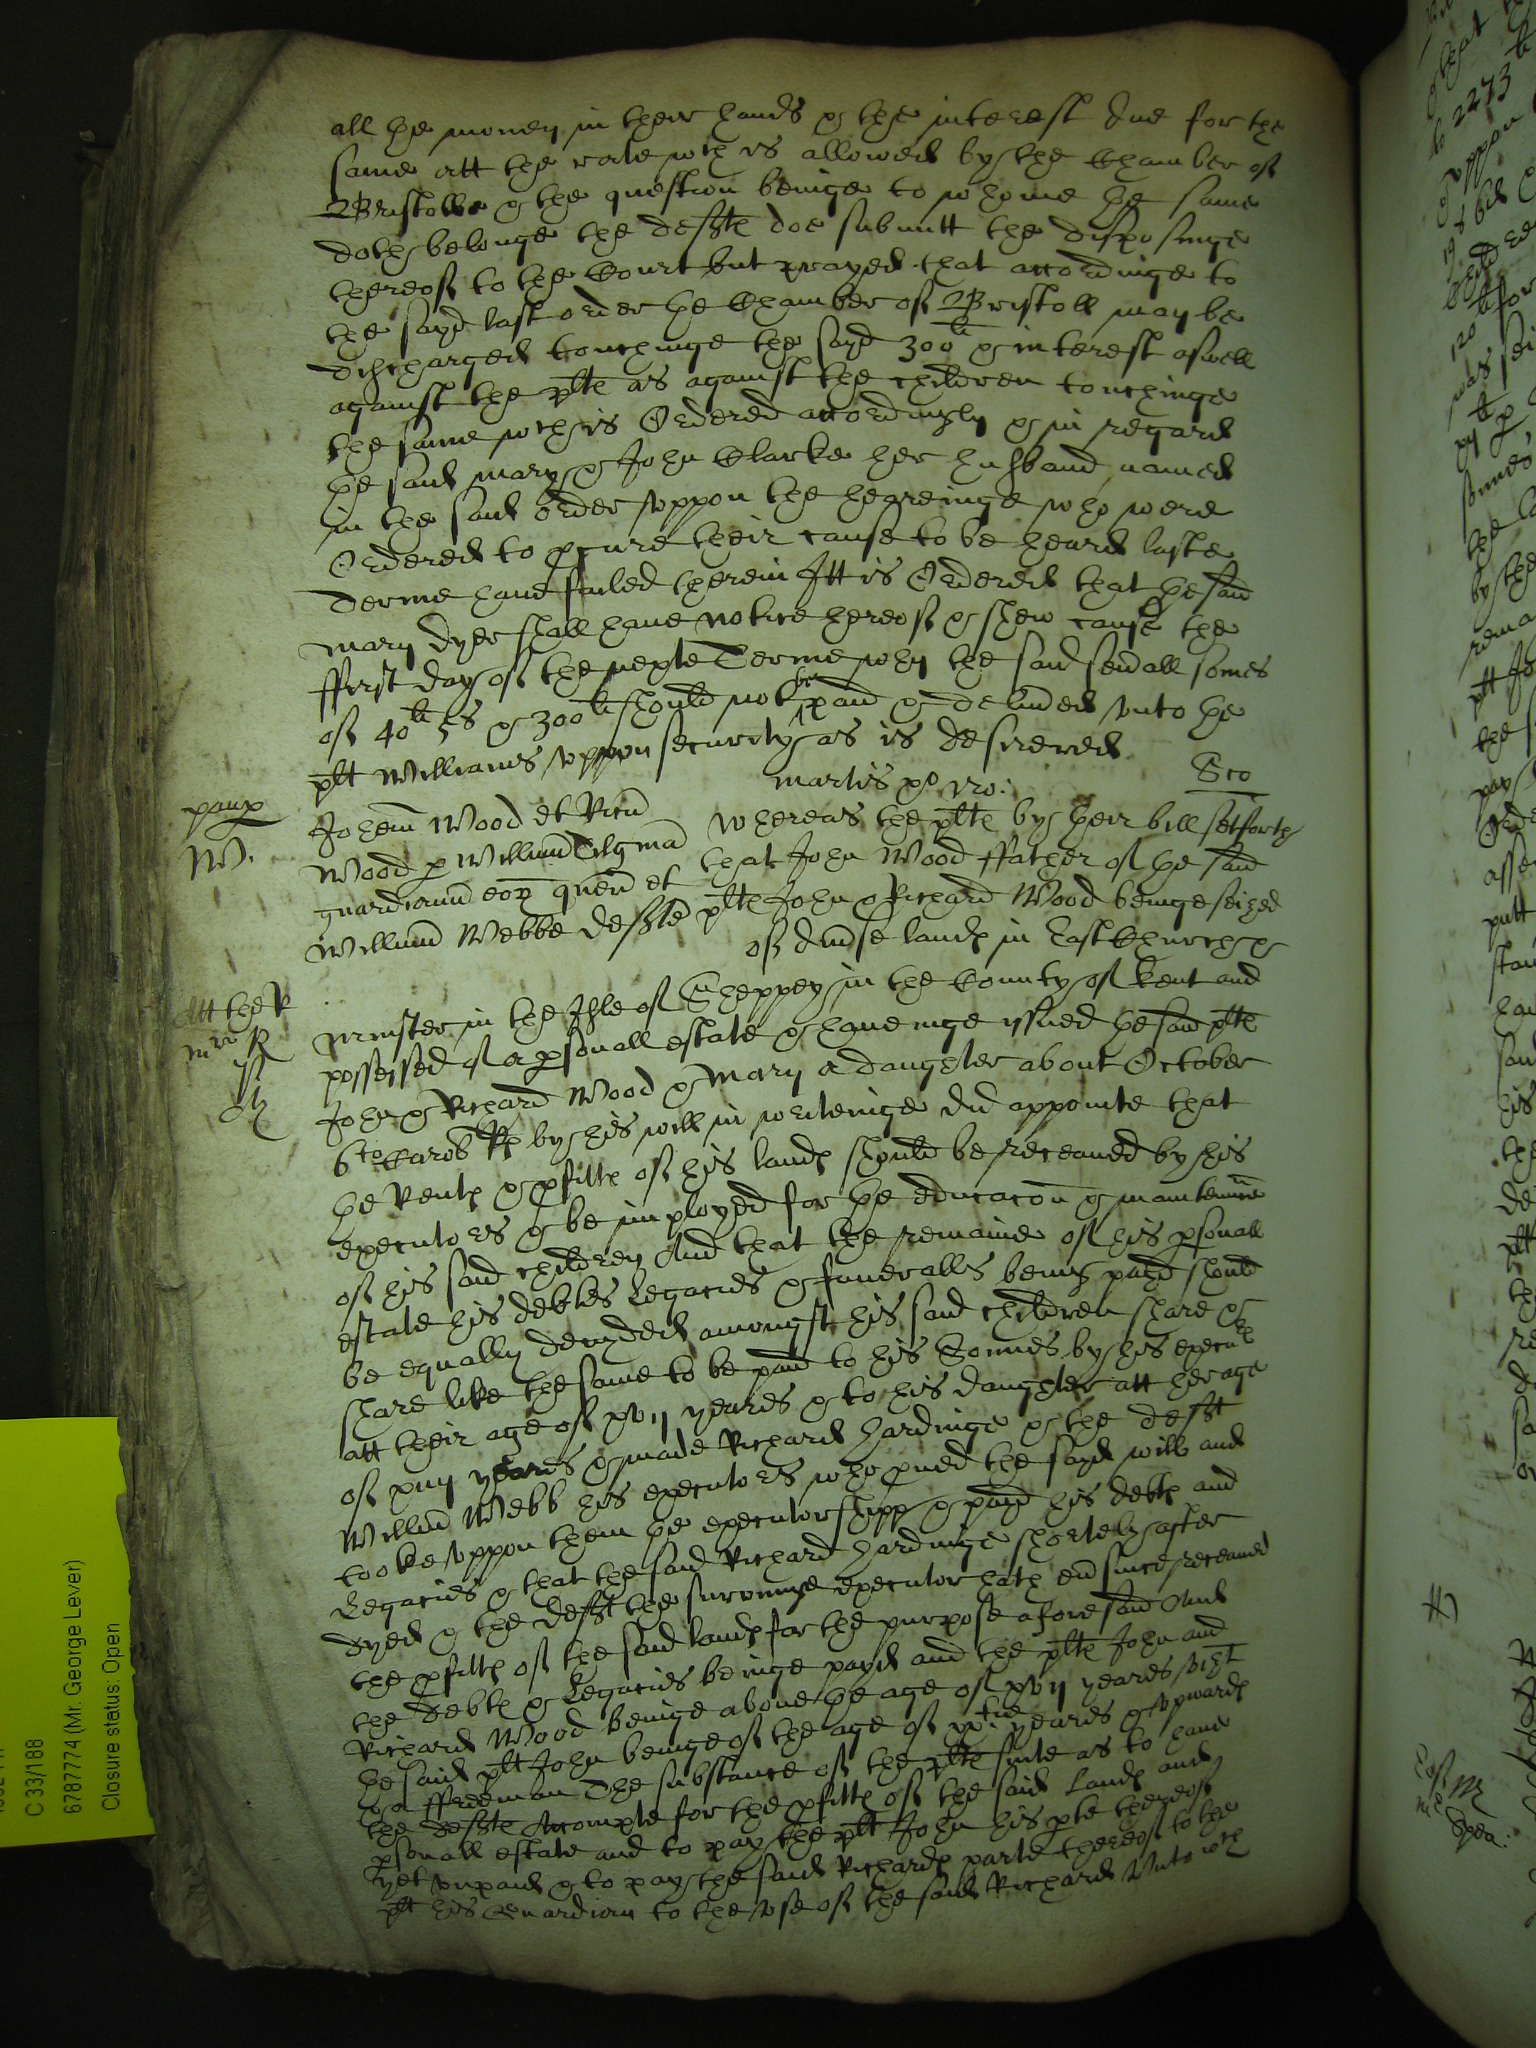 all the money in their hands & the interest due for the
same att the rate wch is allowed by the Chamber of
Bristoll & the question beinge to whome the same
doth belonge the defts doe submitt the disposinge
thereof to the Court but prayed that accordinge to
the sayd last order the Chamber of Bristoll may be
discharged touchinge the sayd 300li & interest aswell
against the plts as against the children touchinge
the same wch is Ordered accordingly & in regard
the said mary & John Clarke her husband named
in the said order uppon the heareinge who were
Ordered to pcure their cause to be heard laste
Terme have failed therein Itt is Ordered that the said
mary dyer shall have notice hereof & shew cause the
ffirst day of the nexte Terme why the said sevall somes
of 40li 5s & 300li should not be paid & delivred unto the
plt Williams uppon security as is desirered
martis po
Sco
paup
W.
Johem Wood et Ricu
Wood p Willimu Tilgma
guardianu eor quer et
Willimu Webbe defte
whereas the plts by their bill setforth
that John Wood ffather of the said
plts John & Richard Wood beinge seized
of divse lands in East Church &
Att the R
mr R
minster in the Ishle of Sheppey in the County of Kent and
possessed of a psonall estate & haveinge yssued the said plts
John & Richard Wood & Mary a daughter about October
6to Carol Rs by his will in writeinge did appointe that
the Rents & pfitts of his lands should be receaved by his
executors & be imployed for the educacon & maintennce
of his said children And that the remaine of his psonall
estate his debtes Legacies & funeralls being payd should
be equally devyded amongst his said children share &
share like the same to be paid to his Sonnes by his executrs
att their age of xvij yeares & to his daughter att her age
of xvij yeares & made Richard Hardinge & the deft
Willim Webb his executors who pved the sayd will and
tooke uppon them the executorshipp & payd his debts and
Legacies & that the said Richard Hardinge shortely after
dyed & the deft the survivinge executor hath evr since receaved
the pfitts of the said lands for the purpose aforesaid And
the debts & Legacies beinge payd and the plts John and
Richard Wood beinge above the age of xvij yeares vizt
the said plt John beinge of the age of xxtie yeares & upwards
& a ffreeman The substance of the plts suite as to have
the defts Accompte for the pfitts of the said Lands and
psonall estate and to pay the plt John his pte thereof
yet unpaid & to pay the said Richards parte thereof to the
plt his Guardian to the use of the said Richard Unto wch
C 33/188
6787774 (Mr. George Lever)
Closure status: Open